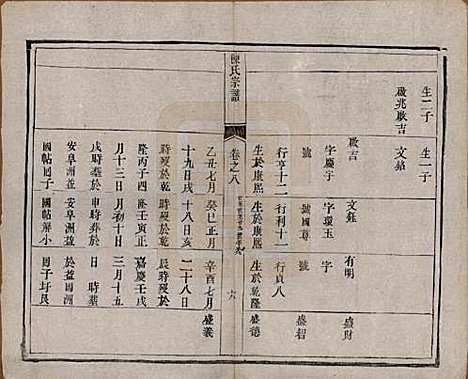 生二子
生二子
啟兆啟吉
文鈺
啟吉
文鈺
有明
盛財
字慶宇
字環玉
字
盛智
號
號國尊
行亨十二
行利十一
行貞八
生於康熙
生於康熙
生於乾隆
盛德
陳氏宗譜
卷之八
六
乙丑七月
癸巳正月
辛酉七月
盛義
十九日戌
十八日亥
二十八日
時歿於乾
時歿於乾
辰時歿於
隆丙子四
隆壬寅正
嘉慶壬戌
月十三日
月初十日
三月十五
戌時葬於
申時葬於
日時葬
安阜洲並
安阜洲益
於益田洲
國帖田子
國帖解小
田子圩艮